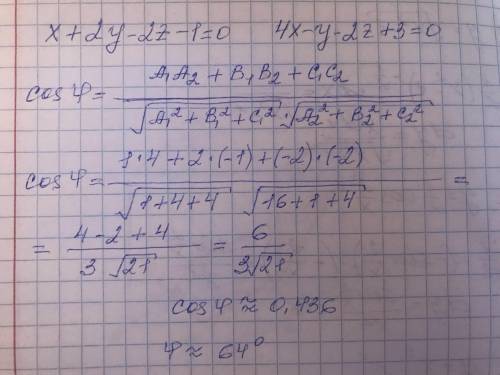 x+2y-2z-1=0 4x-y-2z+3=0
cos φ = (A₁A₂ + B₁B₂ + C₁C₂) / (√(A₁² + B₁² + C₁²) · √(A₂² + B₂² + C₂²))
cos φ = (1·4 + 2·(-1) + (-2)·(-2)) / (√(1+4+4) √(16+1+4)) =
= (4-2+4) / (3 √21) = 6 / (3√21)
cos φ ≈ 0,436
φ ≈ 64°